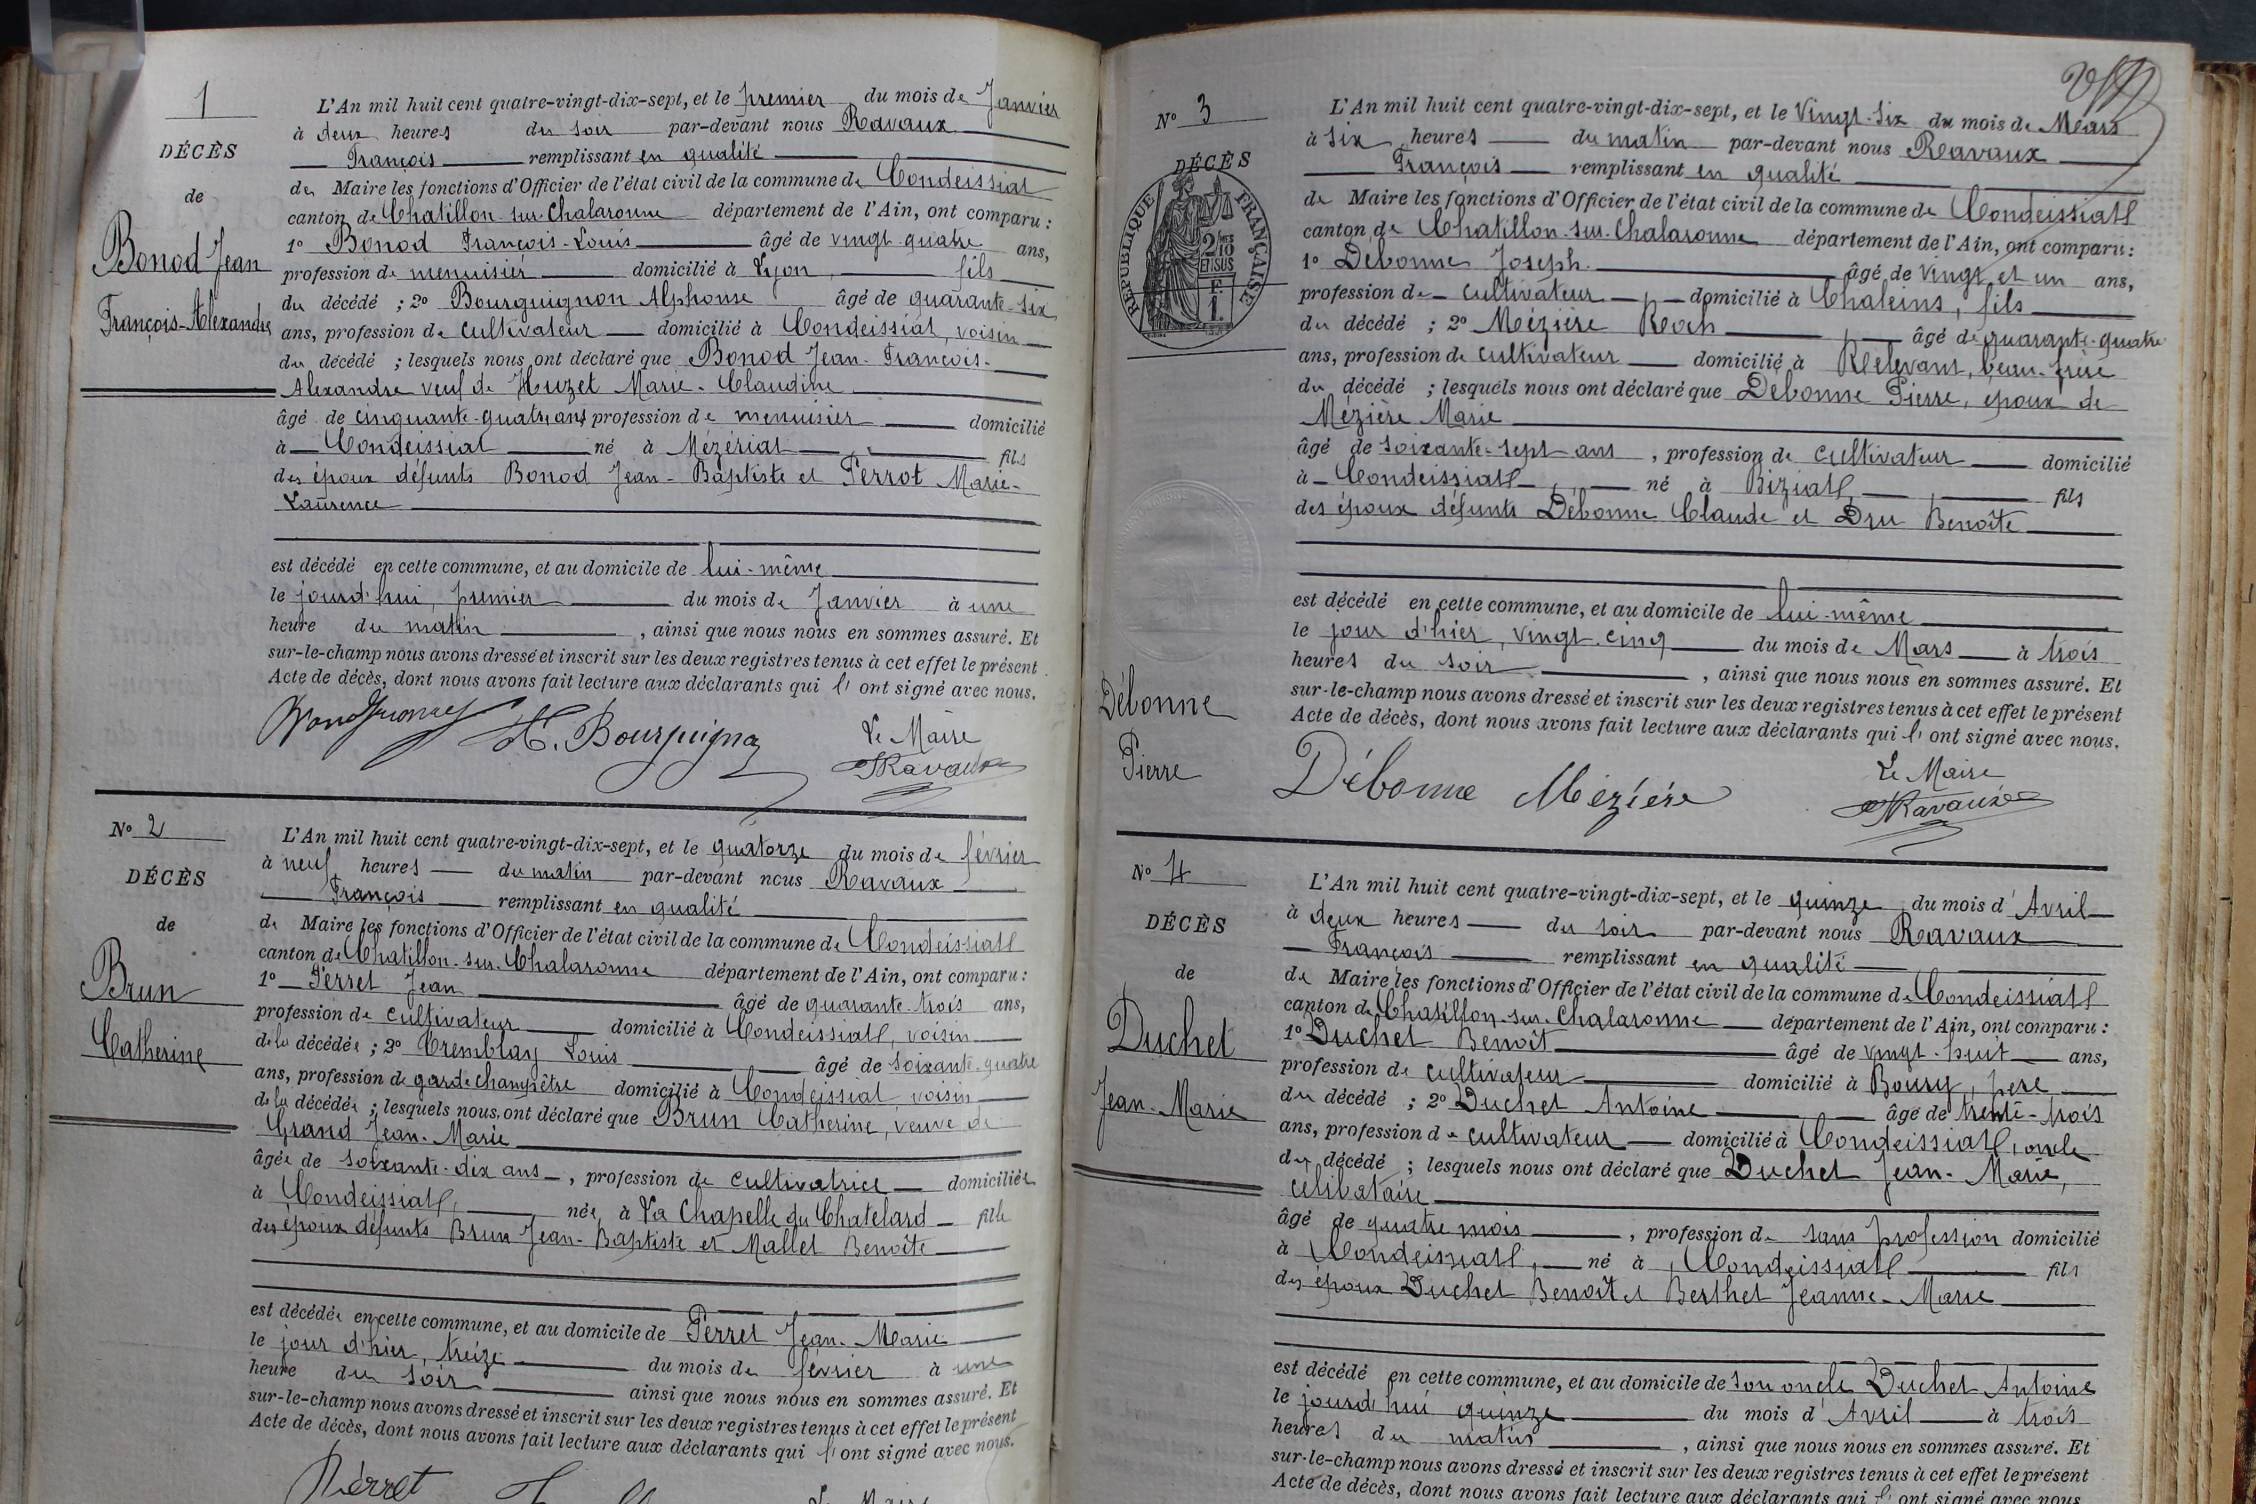 1
DÉCÈS
de
Bonod Jean
François-Alexandre
L'An mil huit cent quatre-vingt-dix-sept, et le premier du mois de Janvier
à deux heures du soir par-devant nous Ravaux
François remplissant en qualité
de Maire les fonctions d'Officier de l'état civil de la commune de Condeissiat
canton de Chatillon-sur-Chalaronne département de l'Ain, ont comparu :
1° Bonod François-Louis âgé de vingt-quatre ans,
profession de menuisier domicilié à Lyon, fils
du décédé ; 2° Bourguignon Alphonse âgé de quarante-six
ans, profession de cultivateur domicilié à Condeissiat, voisin
du décédé ; lesquels nous ont déclaré que Bonod Jean-François-
Alexandre veuf de Huzet Marie-Claudine
âgé de cinquante-quatre ans profession de menuisier domicilié
à Condeissiat né à Mézériat, fils
des époux défunts Bonod Jean-Baptiste et Perrot Marie-
Laurence
est décédé en cette commune, et au domicile de lui-même
le jourd'hui, premier du mois de Janvier à une
heure du matin, ainsi que nous nous en sommes assuré. Et
sur-le-champ nous avons dressé et inscrit sur les deux registres tenus à cet effet le présent
Acte de décès, dont nous avons fait lecture aux déclarants qui l'ont signé avec nous.
A. Bourguignon Le Maire
Ravaux
N° 2
DÉCÈS
de
Brun
Catherine
L'An mil huit cent quatre-vingt-dix-sept, et le quatorze du mois de février
à neuf heures du matin par-devant nous Ravaux
François remplissant en qualité
de Maire les fonctions d'Officier de l'état civil de la commune de Condeissiat
canton de Chatillon-sur-Chalaronne département de l'Ain, ont comparu :
1° Perret Jean âgé de quarante-trois ans,
profession de cultivateur domicilié à Condeissiat, voisin
de la décédée ; 2° Tremblay Louis âgé de soixante-quatre
ans, profession de garde champêtre domicilié à Condeissiat, voisin
de la décédée ; lesquels nous ont déclaré que Brun Catherine, veuve de
Grand Jean-Marie
âgée de soixante-dix ans, profession de cultivatrice domiciliée
à Condeissiat, née à La Chapelle du Chatelard fille
des époux défunts Brun Jean-Baptiste et Mallet Benoîte
est décédée en cette commune, et au domicile de Perret Jean-Marie
le jour d'hier, treize du mois de février à une
heure du soir ainsi que nous nous en sommes assuré. Et
sur-le-champ nous avons dressé et inscrit sur les deux registres tenus à cet effet le présent
Acte de décès, dont nous avons fait lecture aux déclarants qui l'ont signé avec nous.
Perret Le Maire
N° 3
DÉCÈS
RÉPUBLIQUE FRANÇAISE
2/10MES
EN SUS
F.
1.
Débonne
Pierre
L'An mil huit cent quatre-vingt-dix-sept, et le Vingt-six du mois de Mars
à six heures du matin par-devant nous Ravaux
François remplissant en qualité
de Maire les fonctions d'Officier de l'état civil de la commune de Condeissiat
canton de Chatillon-sur-Chalaronne département de l'Ain, ont comparu :
1° Débonne Joseph. âgé de vingt et un ans,
profession de cultivateur domicilié à Chaleins, fils
du décédé ; 2° Mézière Roch âgé de quarante-quatre
ans, profession de cultivateur domicilié à Relevant, beau-frère
du décédé ; lesquels nous ont déclaré que Débonne Pierre, époux de
Mézière Marie
âgé de soixante-sept ans, profession de cultivateur domicilié
à Condeissiat, né à Biziat, fils
des époux défunts Débonne Claude et Dru Benoîte
est décédé en cette commune, et au domicile de lui-même
le jour d'hier, vingt-cinq du mois de Mars à trois
heures du soir, ainsi que nous nous en sommes assuré. Et
sur-le-champ nous avons dressé et inscrit sur les deux registres tenus à cet effet le présent
Acte de décès, dont nous avons fait lecture aux déclarants qui l'ont signé avec nous.
Débonne Mézière Le Maire
Ravaux
N° 4
DÉCÈS
de
Duchet
Jean-Marie
L'An mil huit cent quatre-vingt-dix-sept, et le quinze du mois d'Avril
à deux heures du soir par-devant nous Ravaux
François remplissant en qualité
de Maire les fonctions d'Officier de l'état civil de la commune de Condeissiat
canton de Chatillon-sur-Chalaronne département de l'Ain, ont comparu :
1° Duchet Benoît âgé de vingt-huit ans,
profession de cultivateur domicilié à Bourg, père
du décédé ; 2° Duchet Antoine âgé de trente-trois
ans, profession de cultivateur domicilié à Condeissiat, oncle
du décédé ; lesquels nous ont déclaré que Duchet Jean-Marie,
célibataire
âgé de quatre mois, profession de sans profession domicilié
à Condeissiat, né à Condeissiat fils
des époux Duchet Benoît et Berthet Jeanne-Marie
est décédé en cette commune, et au domicile de son oncle Duchet Antoine
le jourd'hui quinze du mois d'Avril à trois
heures du matin, ainsi que nous nous en sommes assuré. Et
sur-le-champ nous avons dressé et inscrit sur les deux registres tenus à cet effet le présent
Acte de décès, dont nous avons fait lecture aux déclarants qui l'ont signé avec nous.